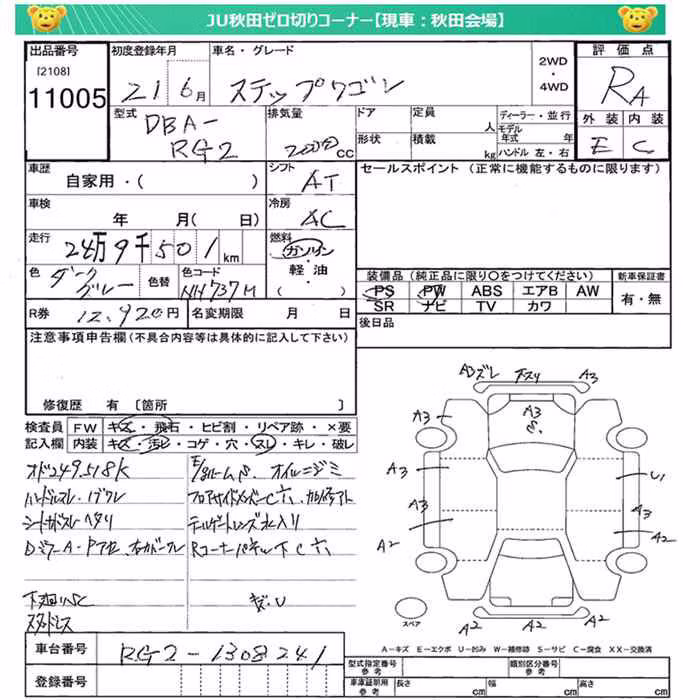 JU秋田ゼロ切りコーナー【現車：秋田会場】
出品番号
[2108]
11005
初度登録年月
21 6月
車名・グレード
ステップワゴン
2WD
・
4WD
評価点
RA
外装 内装
E C
型式
DBA-
RG2
排気量
2000 CC
ドア
定員
人
形状
積載
kg
ディーラー・並行
モデル年式 年
ハンドル 左・右
車歴
自家用・( )
シフト
AT
セールスポイント (正常に機能するものに限ります)
車検
年 月( 日)
冷房
AC
走行
24万9千501km
燃料
ガソリン
・
軽油
・
( )
色
ダーク
グレー
色替
色コード
NH737M
装備品 (純正品に限り○をつけてください)
新車保証書
PS PW ABS エアB AW
SR ナビ TV カワ
有・無
R券 12,920円
名変期限 月 日
後日品
注意事項申告欄(不具合内容等は具体的に記入して下さい)
修復歴 有 〔箇所 〕
検査員 FW キズ・飛石・ヒビ割・リペア跡・×要
記入欄 内装 キズ・汚レ・コゲ・穴・スレ・キレ・破レ
オド249,518K
ハンドルスレ・
シート
オイルニジミ
フロアサイドメンバーC穴
テールゲートレンズ水入り
Rコーナーパネル下C穴
キズ・U
下廻りSC
スタッドレス
A3
A3
A3
A3
A2
U1
A3
A2
A2
A2
スペア
A－キズ E－エクボ U－凹み W－補修跡 S－サビ C－腐食 XX－交換済
車台番号
RG2-1308241
登録番号
型式指定番号
参考
類別区分番号
参考
車庫証明用
参考
長さ cm
幅 cm
高さ cm